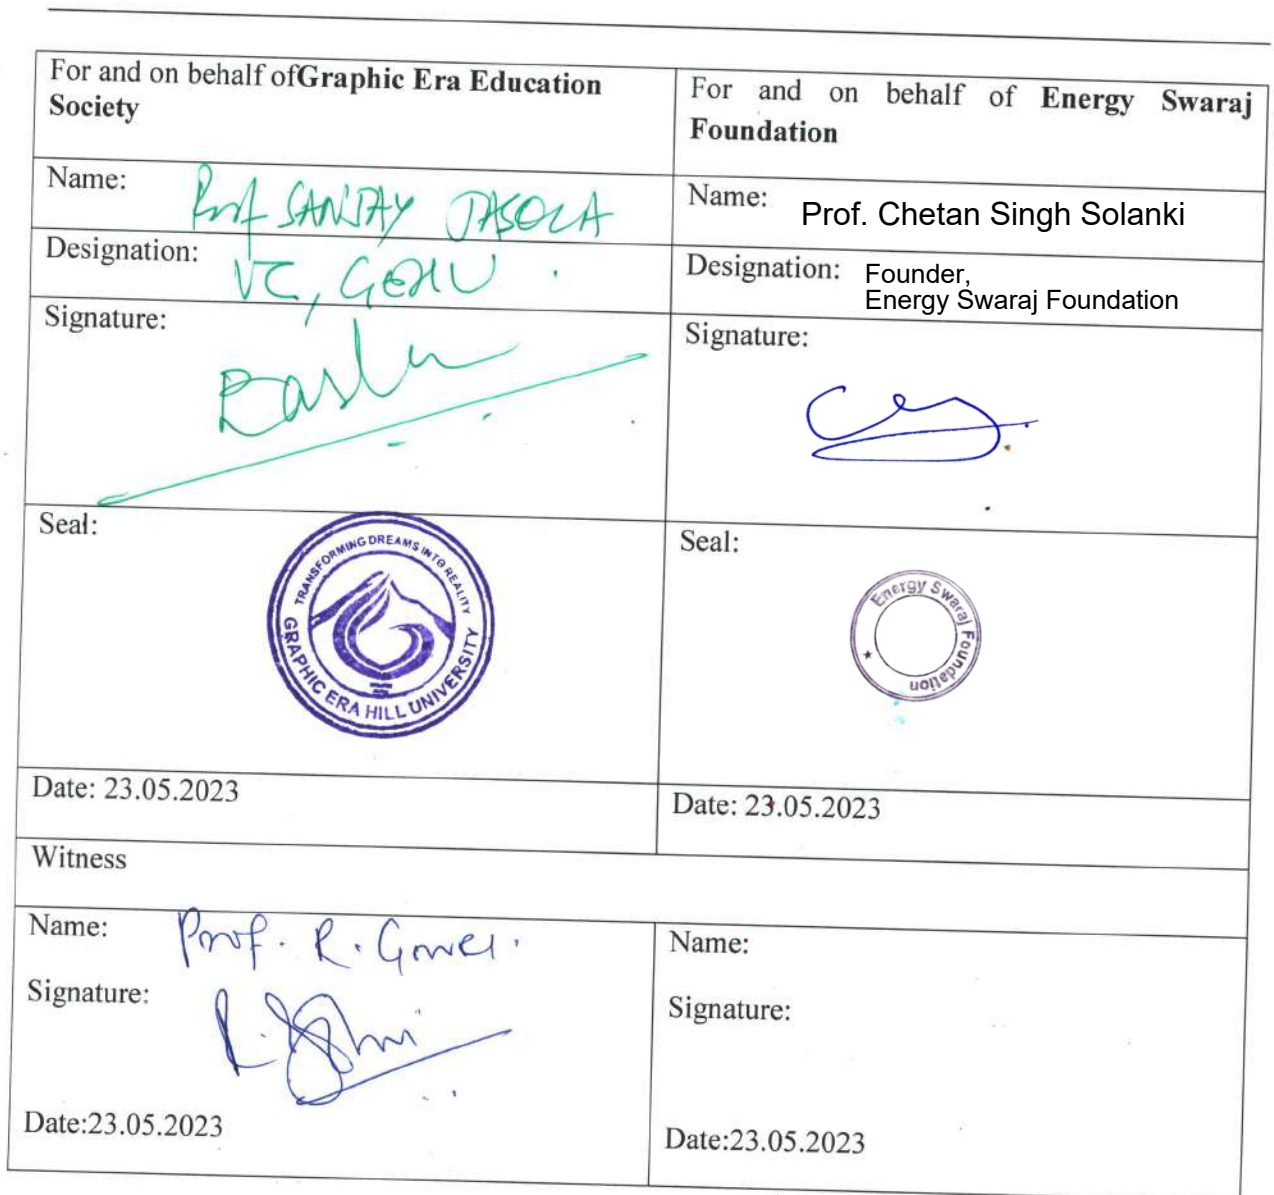 For and on behalf ofGraphic Era Education
Society
For and on behalf of Energy Swaraj
Foundation
Name: Prof SANJAY JASOLA
Name: Prof. Chetan Singh Solanki
Designation: VC, GEHU
Designation: Founder,
Energy Swaraj Foundation
Signature:
Signature:
Seal:
TRANSFORMING DREAMS INTO REALITY
GRAPHIC ERA HILL UNIVERSITY
Seal:
Energy Swaraj Foundation
Date: 23.05.2023
Date: 23.05.2023
Witness
Name: Prof. R. Gowri
Signature:
Date:23.05.2023
Name:
Signature:
Date:23.05.2023